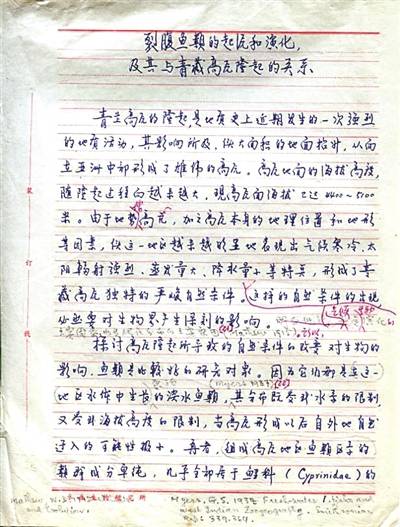 裂腹鱼类的起源和演化,
及其与青藏高原隆起的关系
青藏高原的隆起,是地质史上近期发生的一次强烈
的地质活动,其影响所及,使大面积的地面抬升,从而
在亚洲中部形成了雄伟的高原。高原地面的海拔高度,
随隆起过程而越来越大,现高原面海拔已达4400-5100
米。由于地势高亢,加之高原本身的地理位置和地形
等因素,使这一地区越来越明显地表现出气候寒冷、太
阳辐射强烈、蒸发量大、降水量小等特点,形成了青
藏高原独特的严峻自然条件。这样的自然条件的出现
必然要对生物界产生深刻的影响
探讨高原隆起所导致的自然条件的改变对生物的
影响,鱼类是比较好的研究对象。因为它们都是在这一
地区水体中生长的淡水鱼类,其分布既受到水系的限制,
又受到海拔高度的限制,当高原形成以后自外地自然
迁入的可能性极小。再者,组成高原地区鱼类区系的
类群成分单纯,几乎全部属于鲤科(Cyprinidae)的
装
订
线
Myers, G.S. 1938